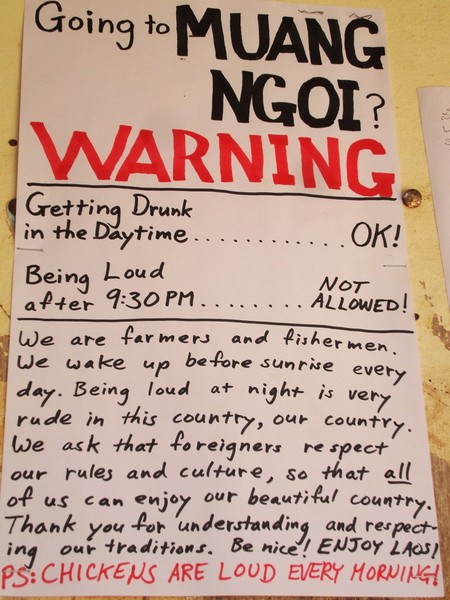 Going to MUANG
NGOI?
WARNING
Getting Drunk
in the Daytime.............OK!
Being Loud
after 9:30PM........NOT ALLOWED!
We are farmers and fishermen.
We wake up before sunrise every
day. Being loud at night is very
rude in this country, our country.
We ask that foreigners respect
our rules and culture, so that all
of us can enjoy our beautiful country.
Thank you for understanding and respect-
ing our traditions. Be nice! ENJOY LAOS!
PS: CHICKENS ARE LOUD EVERY MORNING!